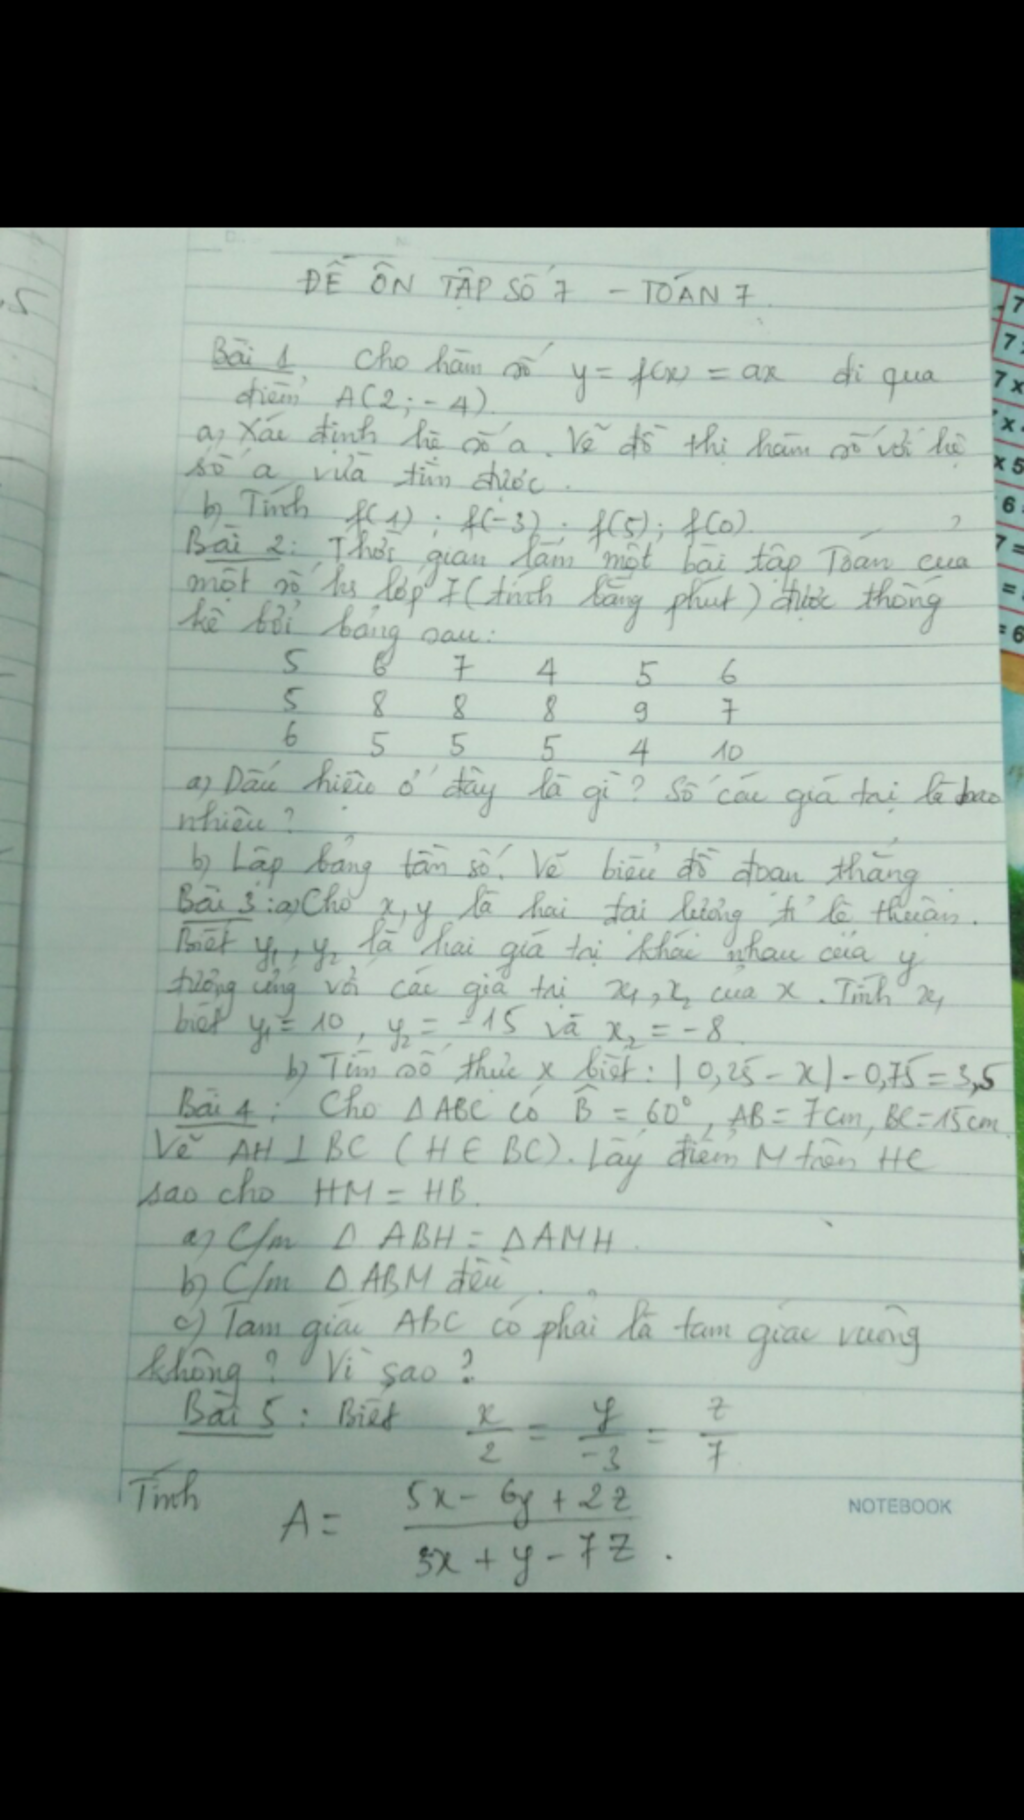 ĐỀ ÔN TẬP SỐ 7 - TOÁN 7.
Bài 1 Cho hàm số y = f(x) = ax đi qua
điểm A(2; -4).
a) Xác định hệ số a. Vẽ đồ thị hàm số với hệ
số a vừa tìm được.
b) Tính f(1); f(-3); f(5); f(0).
Bài 2: Thời gian làm một bài tập Toán của
một số hs lớp 7 (tính bằng phút) được thống
kê bởi bảng sau:
5 6 7 4 5 6
5 8 8 8 9 7
6 5 5 5 4 10
a) Dấu hiệu ở đây là gì? Số các giá trị là bao
nhiêu?
b) Lập bảng tần số. Vẽ biểu đồ đoạn thẳng
Bài 3: a) Cho x, y là hai đại lượng tỉ lệ thuận.
Biết y1, y2 là hai giá trị khác nhau của y
tương ứng với các giá trị x1, x2 của x. Tính x1
biết y1 = 10, y2 = -15 và x2 = -8
b) Tìm số thực x biết: |0,25 - x| - 0,75 = 3,5
Bài 4: Cho ΔABC có B̂ = 60°, AB = 7cm, BC = 15cm.
Vẽ AH ⊥ BC (H ∈ BC). Lấy điểm M trên HC
sao cho HM = HB.
a) C/m Δ ABH = ΔAMH.
b) C/m Δ ABM đều.
c) Tam giác ABC có phải là tam giác vuông
không? Vì sao?
Bài 5: Biết x/2 = y/-3 = z/7
Tính A = (5x - 6y + 2z)/(3x + y - 7z).
NOTEBOOK
7
7
7 x
x 5
6
7 =
=
= 6